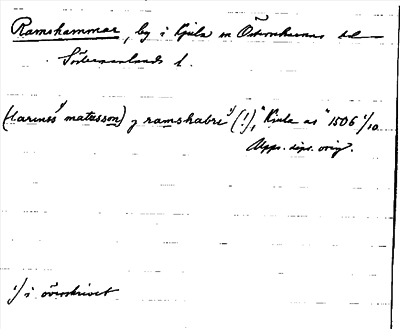 Ramshammar, by i Kjula sn Österrekarne hd
Södermanlands l.
(larenss matusson) j ramskabri ¹/ (!), "Kiula as" 1506 ¹/10
Upps. dipl. orig.
¹/ i överskrivet